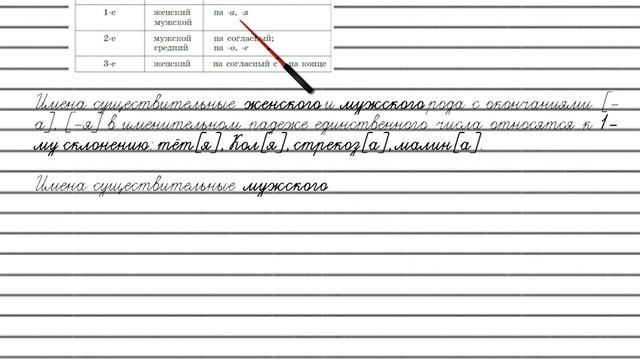 1-е женский мужской на -а, -я
2-е мужской средний на согласный; на -о, -е
3-е женский на согласный с на конце
Имена существительные женского и мужского рода с окончаниями [-
а], [-я] в именительном падеже единственного числа относятся к 1-
му склонению: тёт[я], Кол[я], стрекоз[а], малин[а].
Имена существительные мужского